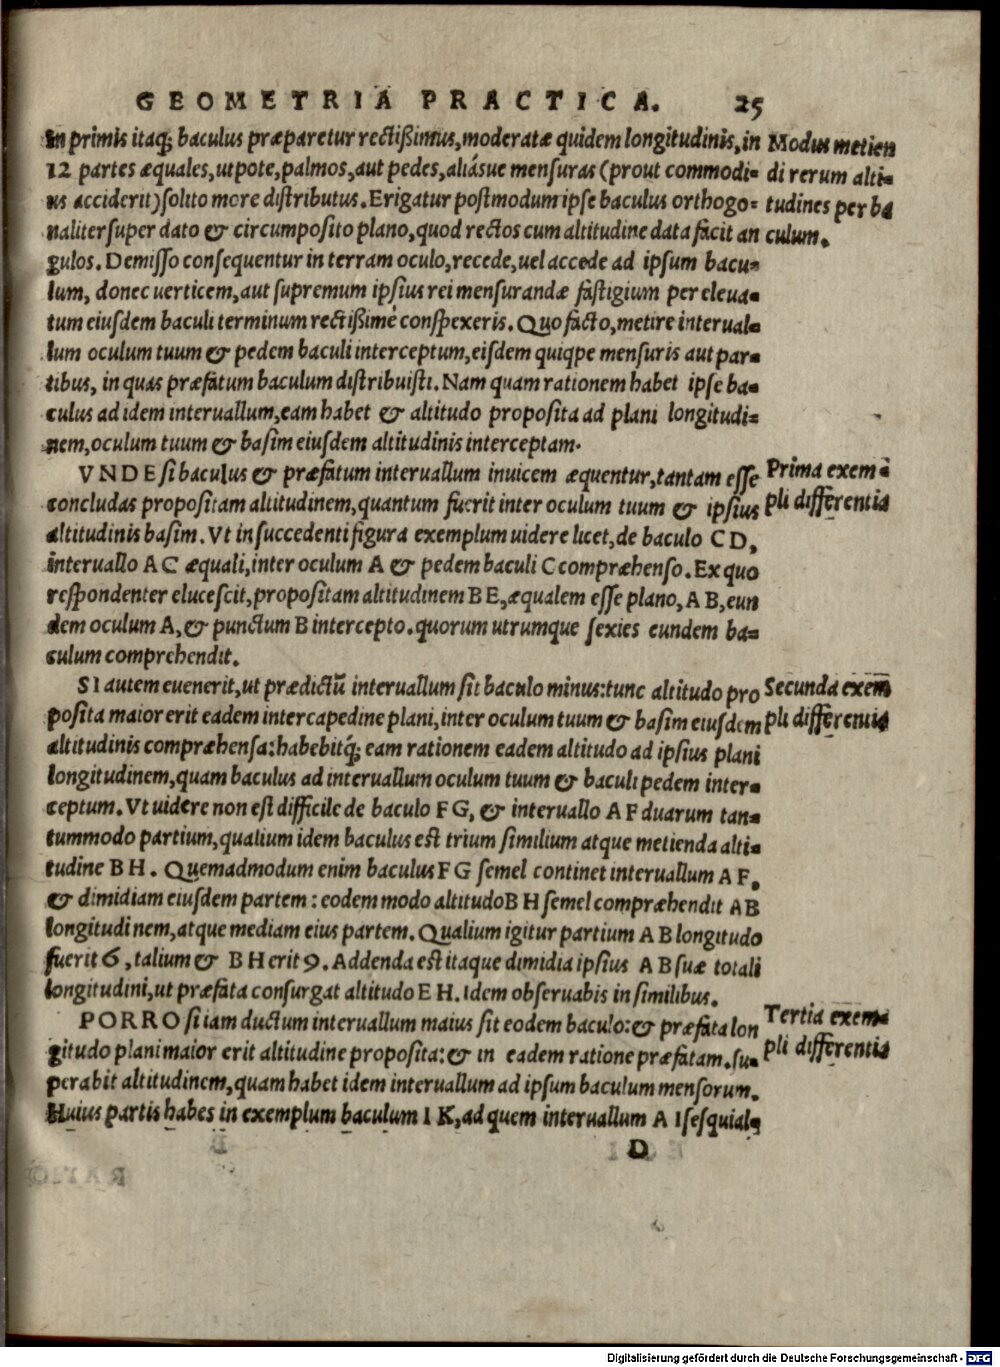 GEOMETRIA PRACTICA. 25
In primis itaq; baculus præparetur rectißimus, moderatæ quidem longitudinis, in
12 partes æquales, utpote, palmos, aut pedes, aliásue mensuras (prout commodi-
us acciderit) solito more distributus. Erigatur postmodum ipse baculus orthogo-
naliter super dato & circumposito plano, quod rectos cum altitudine data facit an
gulos. Demisso consequentur in terram oculo, recede, uel accede ad ipsum bacu-
lum, donec uerticem, aut supremum ipsius rei mensurandæ fastigium per eleua-
tum eiusdem baculi terminum rectißimè conspexeris. Quo facto, metire interual-
lum oculum tuum & pedem baculi interceptum, eisdem quiqpe mensuris aut par-
tibus, in quas præfatum baculum distribuisti. Nam quam rationem habet ipse ba-
culus ad idem interuallum, eam habet & altitudo proposita ad plani longitudi-
nem, oculum tuum & basim eiusdem altitudinis interceptam.
Modus metien
di rerum alti-
tudines per ba
culum.
VNDE si baculus & præfatum interuallum inuicem æquentur, tantam esse
concludas propositam altitudinem, quantum fuerit inter oculum tuum & ipsius
altitudinis basim. Vt in succedenti figura exemplum uidere licet, de baculo CD,
interuallo AC æquali, inter oculum A & pedem baculi C compræhenso. Ex quo
respondenter elucescit, propositam altitudinem BE, æqualem esse plano, AB, eun
dem oculum A, & punctum B intercepto. quorum utrumque sexies eundem ba-
culum comprehendit.
Prima exem-
pli differentia
SI autem euenerit, ut prædictũ interuallum sit baculo minus: tunc altitudo pro
posita maior erit eadem intercapedine plani, inter oculum tuum & basim eiusdem
altitudinis compræhensa: habebitq́; eam rationem eadem altitudo ad ipsius plani
longitudinem, quam baculus ad interuallum oculum tuum & baculi pedem inter-
ceptum. Vt uidere non est difficile de baculo FG, & interuallo AF duarum tan-
tummodo partium, qualium idem baculus est trium similium atque metienda alti-
tudine BH. Quemadmodum enim baculus FG semel continet interuallum AF,
& dimidiam eiusdem partem: eodem modo altitudo BH semel compræhendit AB
longitudi nem, atque mediam eius partem. Qualium igitur partium AB longitudo
fuerit 6, talium & BH erit 9. Addenda est itaque dimidia ipsius AB suæ totali
longitudini, ut præfata consurgat altitudo EH. Idem obseruabis in similibus.
Secunda exem
pli differentia
PORRO si iam ductum interuallum maius sit eodem baculo: & præfata lon
gitudo plani maior erit altitudine proposita: & in eadem ratione præfatam. su-
perabit altitudinem, quam habet idem interuallum ad ipsum baculum mensorum.
Huius partis habes in exemplum baculum IK, ad quem interuallum AI sesquial-
Tertia exem-
pli differentia
D
Digitalisierung gefördert durch die Deutsche Forschungsgemeinschaft - DFG